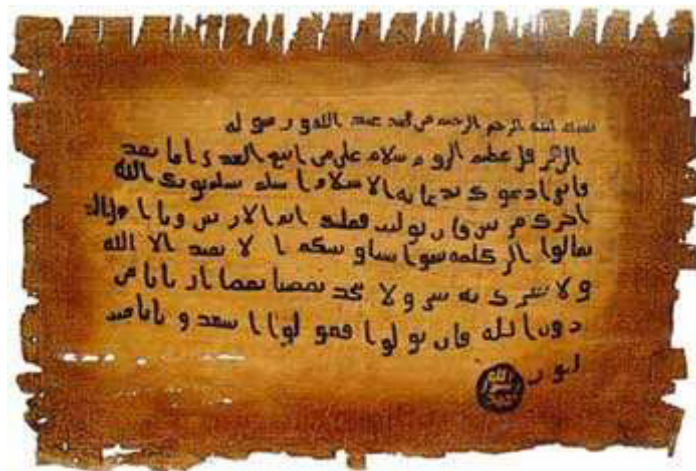 بسم الله الرحمن الرحيم من محمد عبد الله ورسوله
الى هرقل عظيم الروم سلام على من اتبع الهدى اما بعد
فاني ادعوك بدعاية الاسلام اسلم تسلم يوتك الله
اجرك مرتين فان توليت فعليك اثم الاريسين ويا اهل
تعالوا الى كلمة سوا بيننا وبينكم ا لا نعبد الا الله
ولا نشرك به شيا ولا يتخذ بعضنا بعضا اربابا من
دون الله فان تولوا فقولوا اشهدوا بانا مسلـ
مون
الله
رسول
محمد